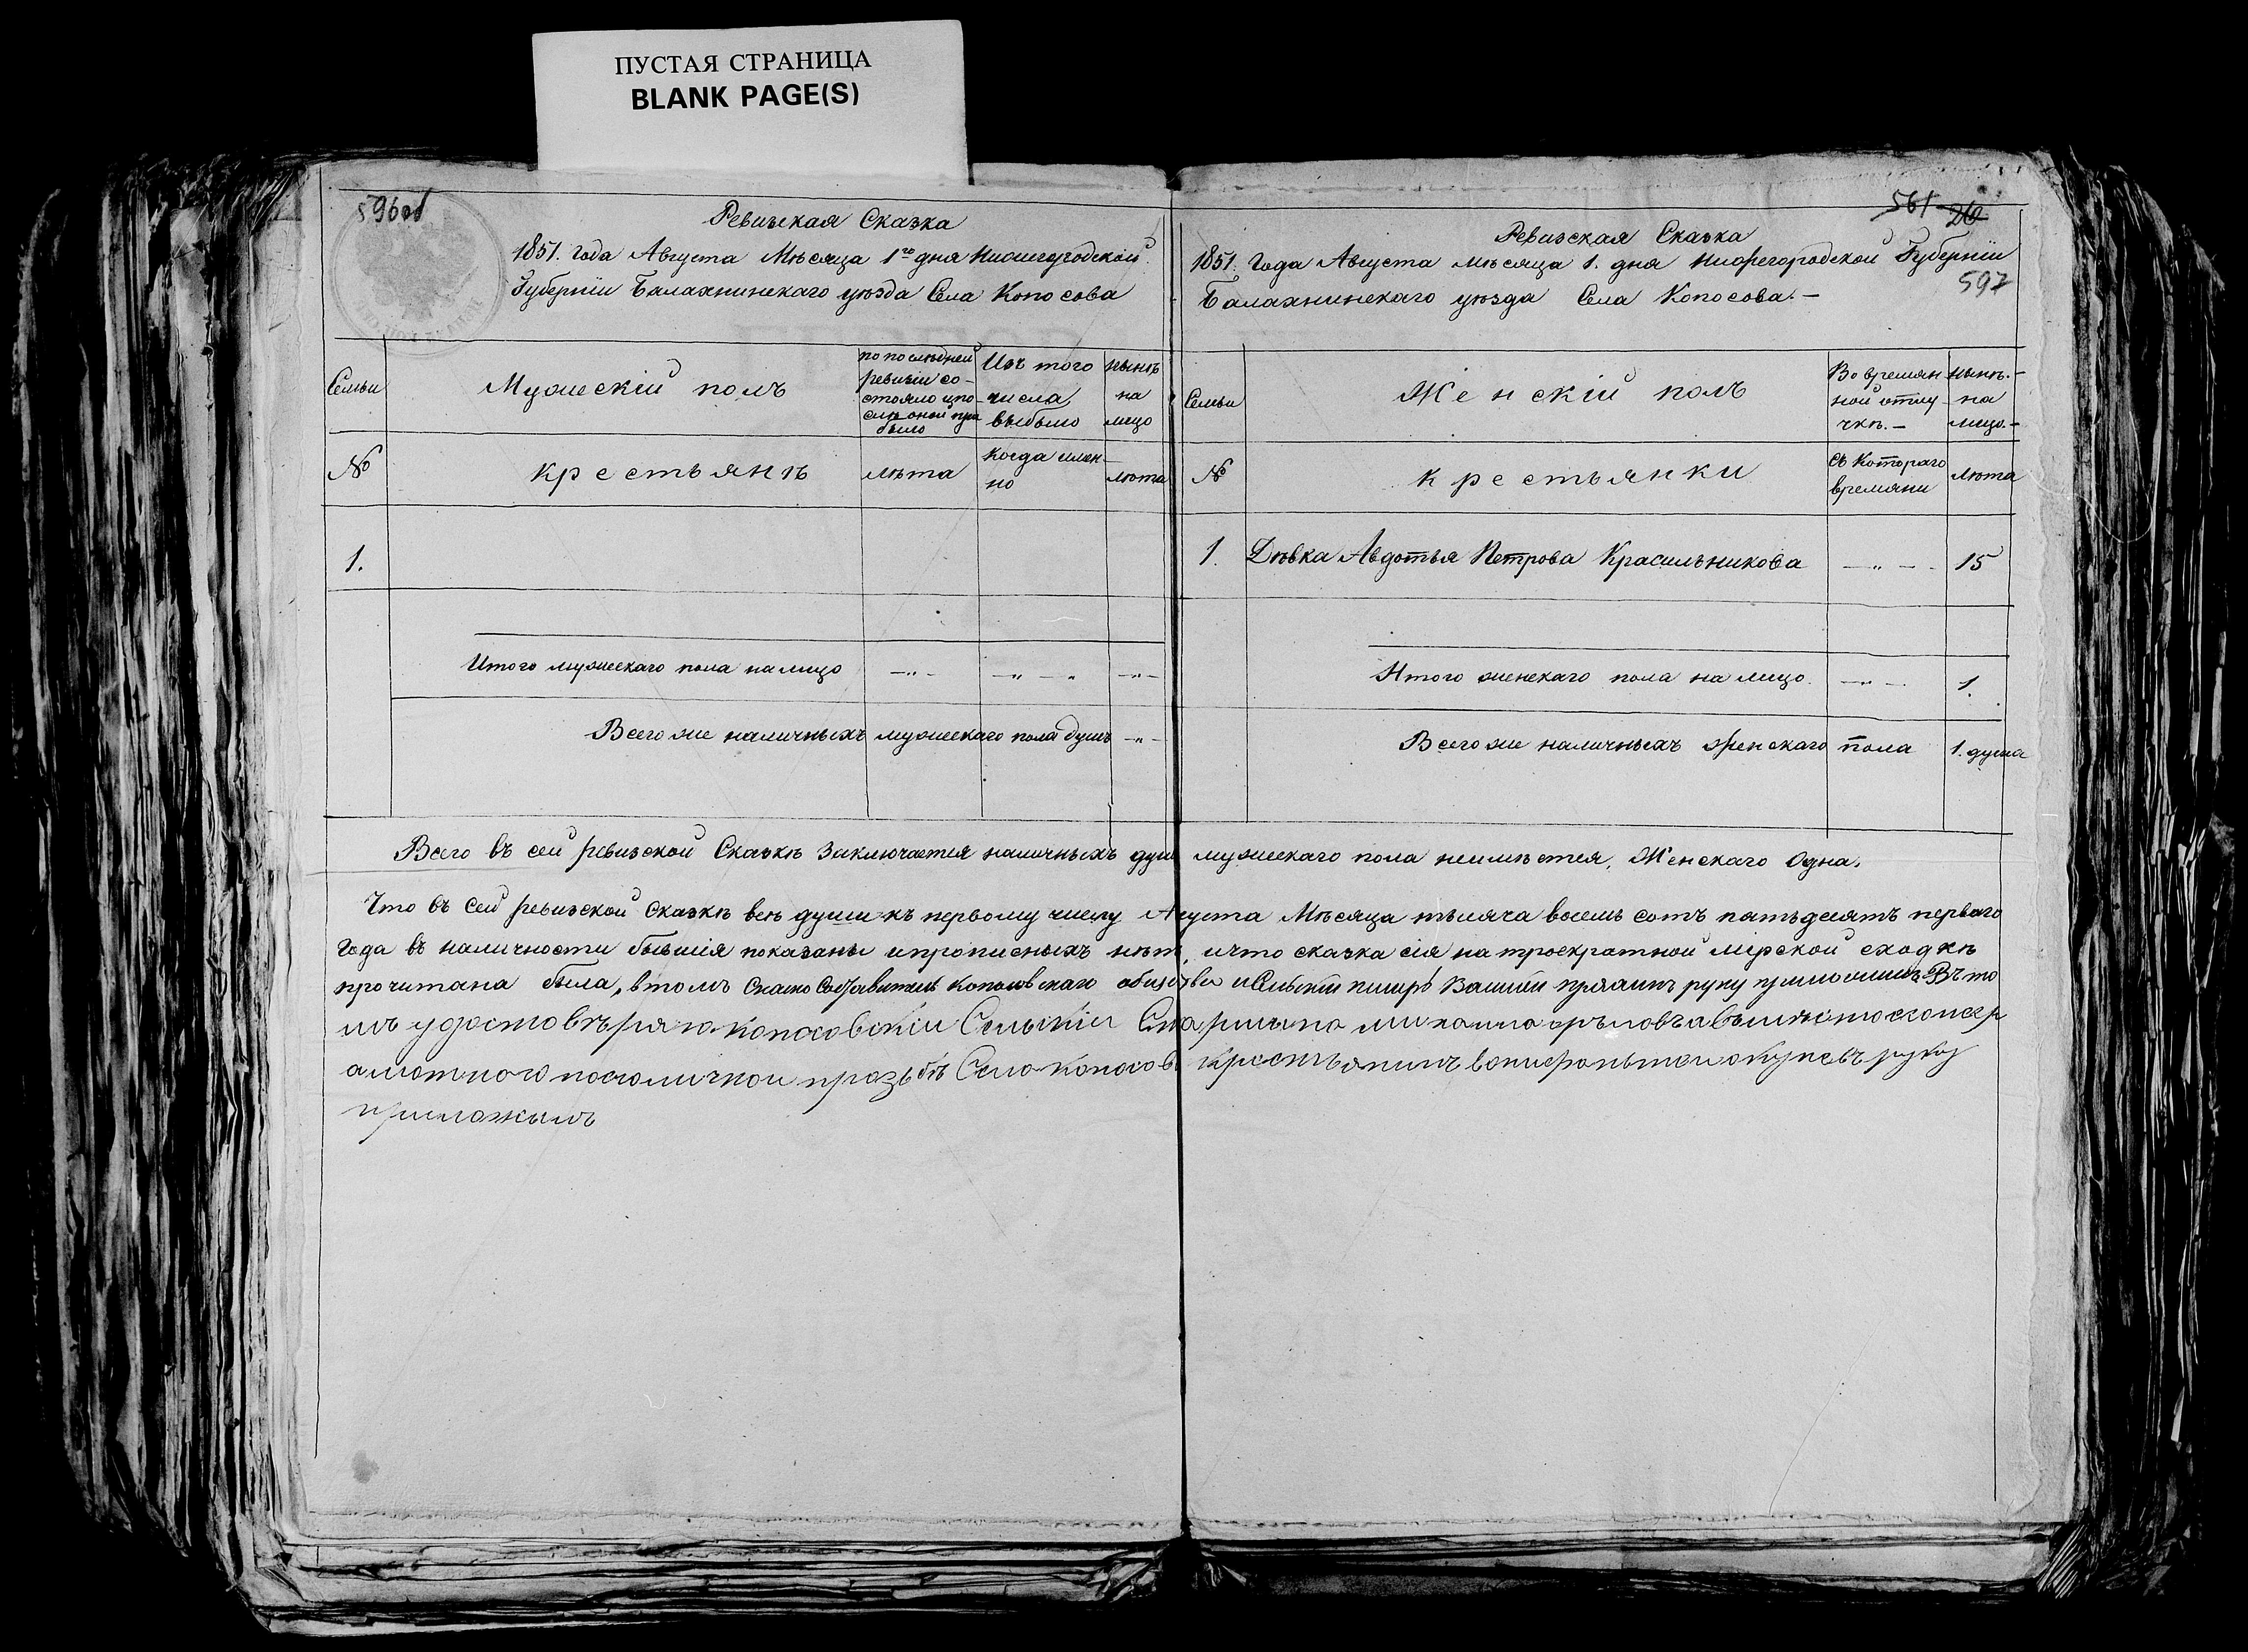 ПУСТАЯ СТРАНИЦА
BLANK PAGE(S)
596об
Ревизская Сказка
1851. года Августа Мѣсяца 1го дня Нижегородской
Губерніи Балахнинскаго уѣзда Села Копосова
Семьи
Мужескій полъ
по послѣдней ревизіи состояло и после оной прибыло
Изъ того числа выбыло
нынѣ на лицо
№
крестьянъ
лѣта
когда именно
лѣта
1.
Итого мужескаго пола на лицо
Всего же наличныхъ мужескаго пола душъ
561 20
Ревизская Сказка
1851. Года Августа мѣсяца 1. дня Нижегородской Губерніи
597
Балахнинскаго уѣзда Села Копосова. –
Семьи
Женскій полъ
Во времянной отлучкѣ. –
нынѣ. – на лицо. –
№
крестьянки
съ котораго времяни
лѣта
1. Дѣвка Авдотья Петрова Красильникова 15
Итого женскаго пола на лицо. 1.
Всего же наличныхъ женскаго пола 1. душа
Всего въ сей ревизской Сказкѣ заключается наличныхъ душ мужескаго пола неимѣется, Женскаго Одна.
Что въ сей ревизской сказкѣ всѣ души къ первому числу Августа Мѣсяца тысяча восемь сотъ пятьдесятъ перваго
Года въ наличности бывшія показаны и прописныхъ нѣтъ, и что сказка сія на троекратной мірской сходкѣ
прочитана была, втомъ Копосовскаго общества и Сельскій писарь руку приложилъ Въ то
мъ удостовѣряю копосовскій Сельскій Старшина михаила орѣловъ а вместо его
по его личной прозьбѣ Села копосова крестьянинъ руку
приложылъ